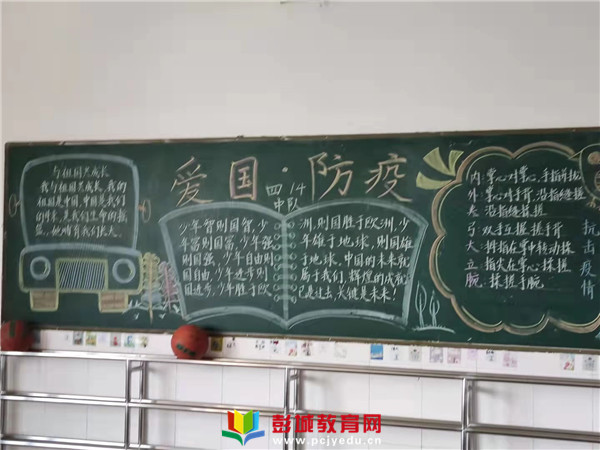 爱国·防疫
四14
中队
与祖国共成长
我与祖国共成长,我的
祖国是中国,中国是我们
的母亲,是我们生命的摇
篮,她哺育我们长大。
少年智则国智,少
年富则国富,少年强
则国强,少年自由则
国自由,少年进步则
国进步,少年胜于欧
洲,则国胜于欧洲,少
年雄于地球,则国雄
于地球,中国的未来就
属于我们,辉煌的成就
已是过去,关键是未来!
内:掌心对掌心,手指并拢
外:掌心对手背,沿指缝搓
夹:沿指缝搓搓
弓:双手互握搓手背
大:拇指在掌中转动搓
立:指尖在掌心揉搓
腕:揉搓手腕
抗击疫情
彭城教育网
www.pcjyedu.cn